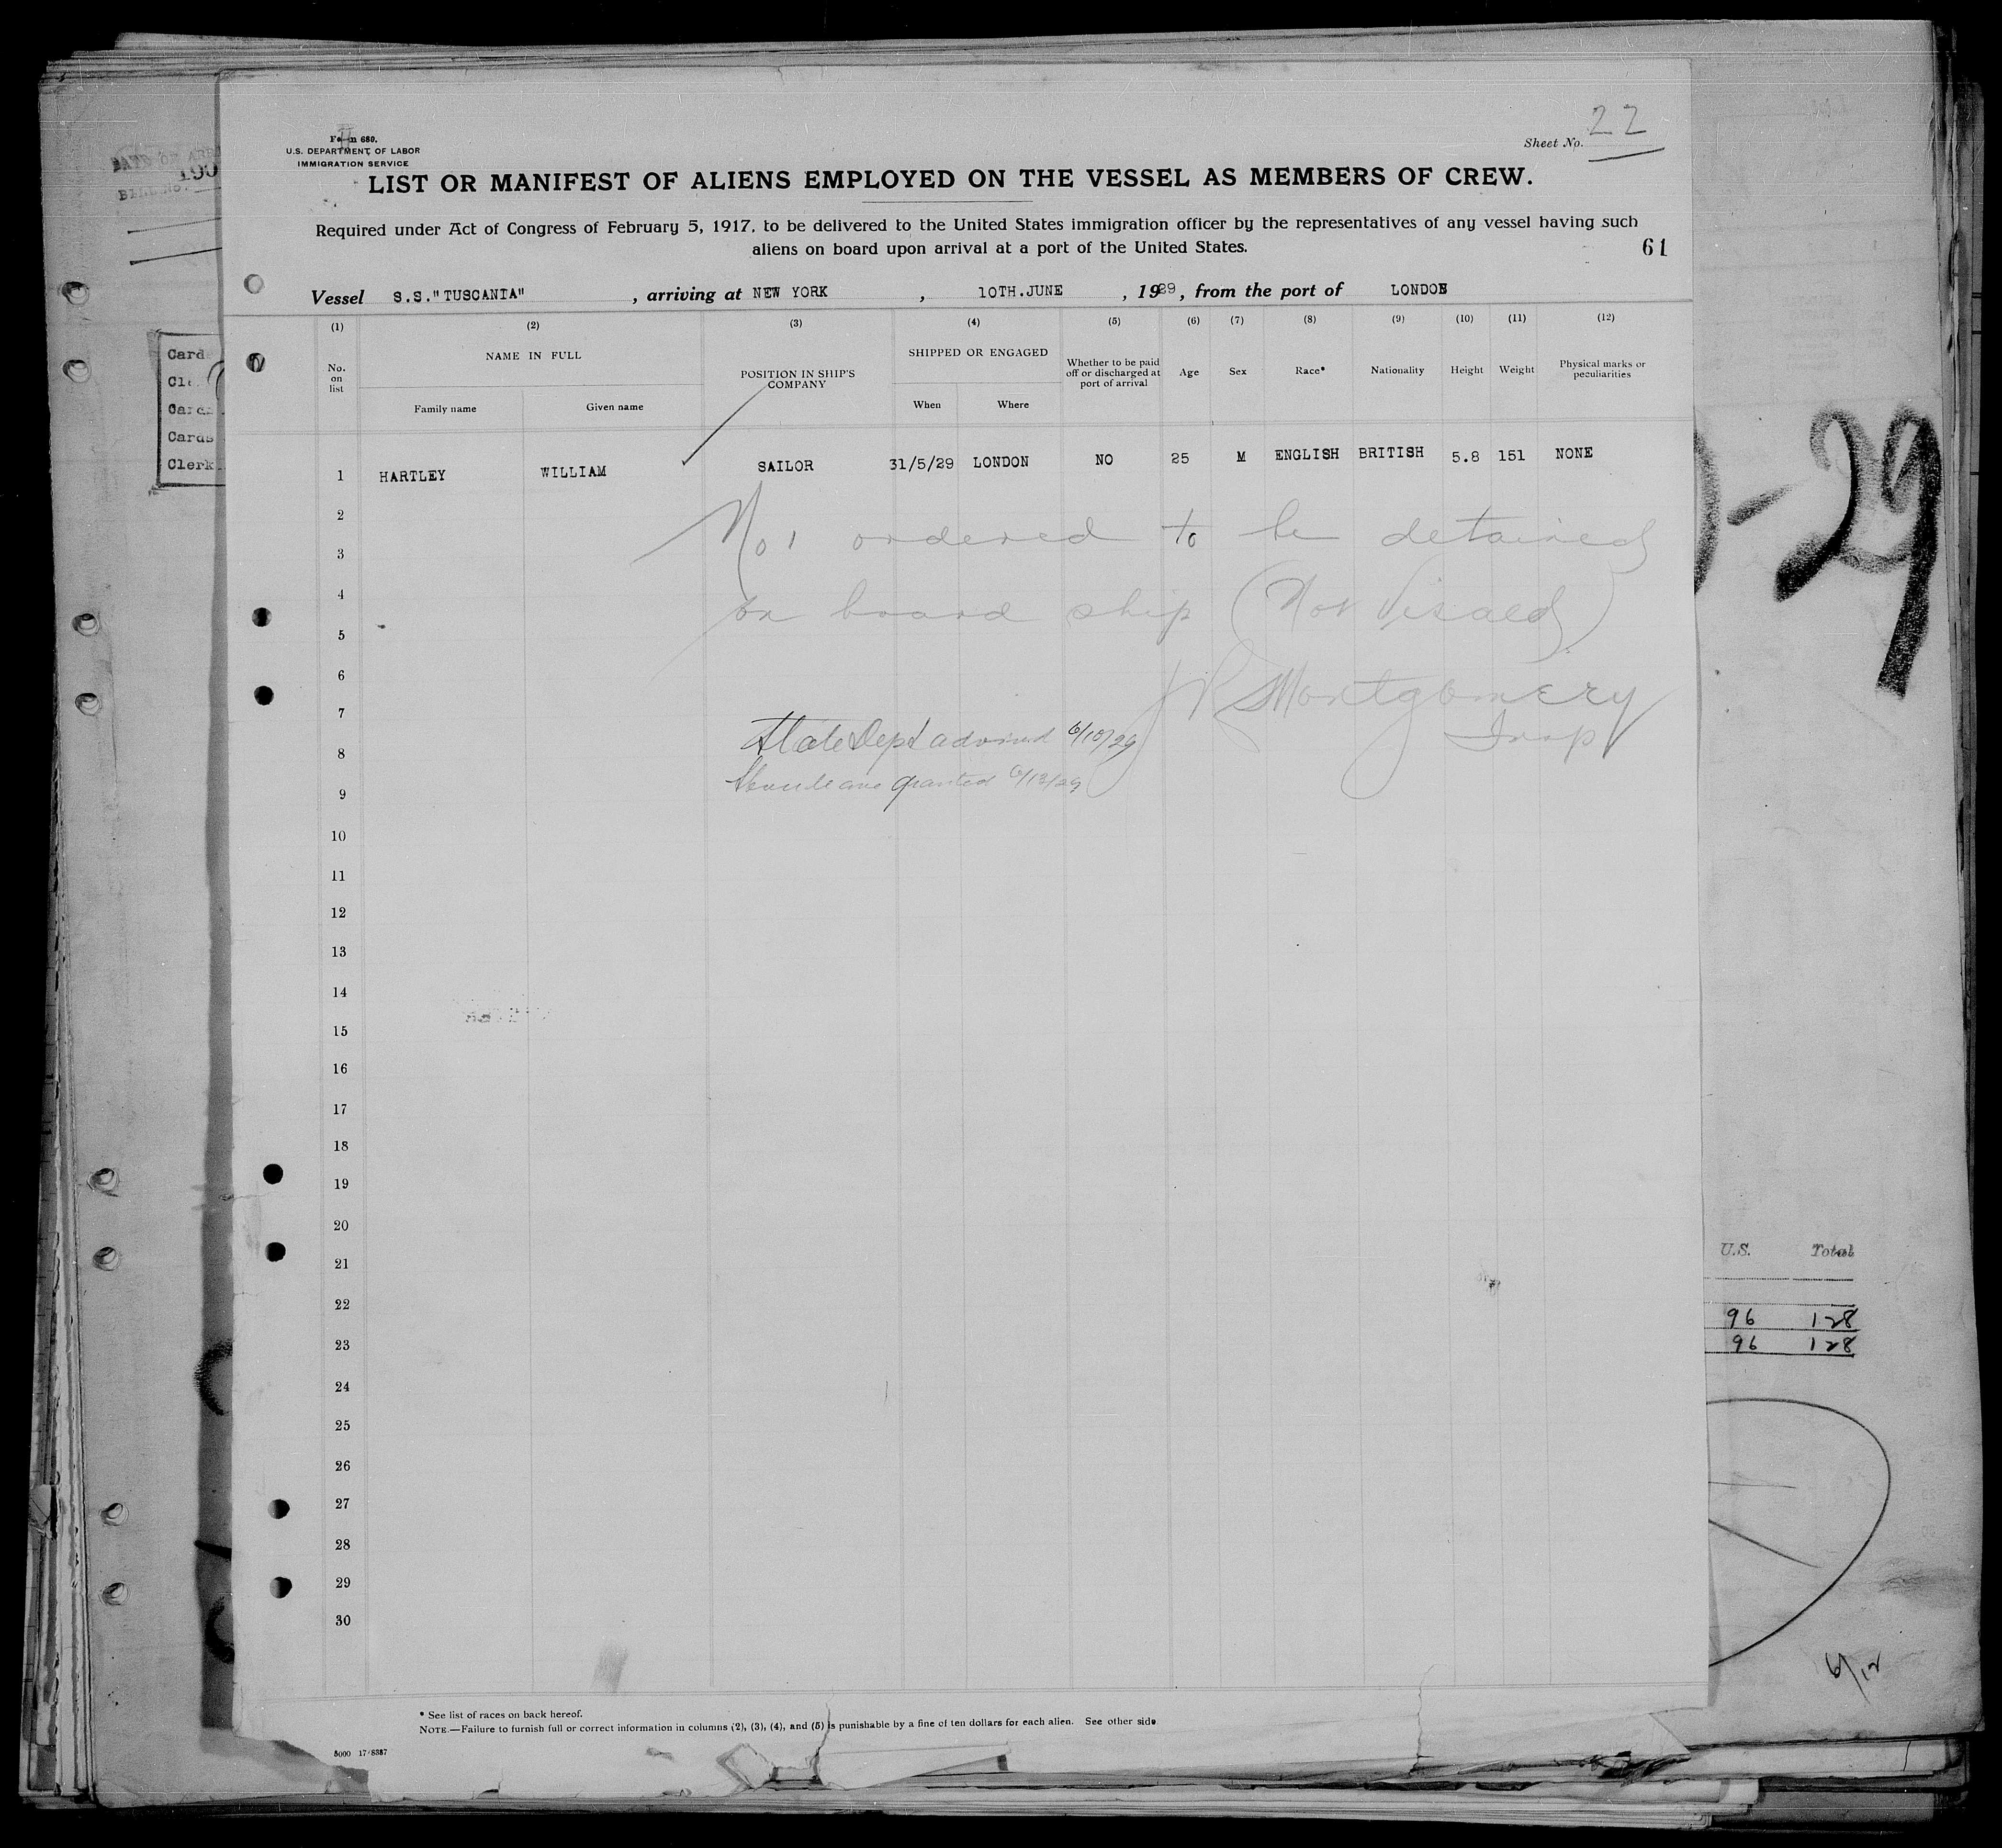 Form 680.
U.S. DEPARTMENT OF LABOR
IMMIGRATION SERVICE
Sheet No. 22
LIST OR MANIFEST OF ALIENS EMPLOYED ON THE VESSEL AS MEMBERS OF CREW.
Required under Act of Congress of February 5, 1917, to be delivered to the United States immigration officer by the representatives of any vessel having such
aliens on board upon arrival at a port of the United States.
61
Vessel S.S."TUSCANIA", arriving at NEW YORK, 10TH.JUNE, 1929, from the port of LONDON
(1) (2) (3) (4) (5) (6) (7) (8) (9) (10) (11) (12)
No. on list
NAME IN FULL
Family name Given name
POSITION IN SHIP'S COMPANY
SHIPPED OR ENGAGED
When Where
Whether to be paid off or discharged at port of arrival
Age Sex Race* Nationality Height Weight
Physical marks or peculiarities
1 HARTLEY WILLIAM SAILOR 31/5/29 LONDON NO 25 M ENGLISH BRITISH 5.8 151 NONE
2
No 1 ordered to be detained
3
4
on board ship (Not Visaed)
5
6
JR Montgomery
7
Insp
State Dept advised 6/10/29
8
granted 6/13/29
9
10
11
12
13
14
15
16
17
18
19
20
21
22
23
24
25
26
27
28
29
30
* See list of races on back hereof.
NOTE.—Failure to furnish full or correct information in columns (2), (3), (4), and (5) is punishable by a fine of ten dollars for each alien. See other side
5000 17-8387
Card
Cards
Cards
Clerk
-29
U.S. Total
96 128
96 128
6/12